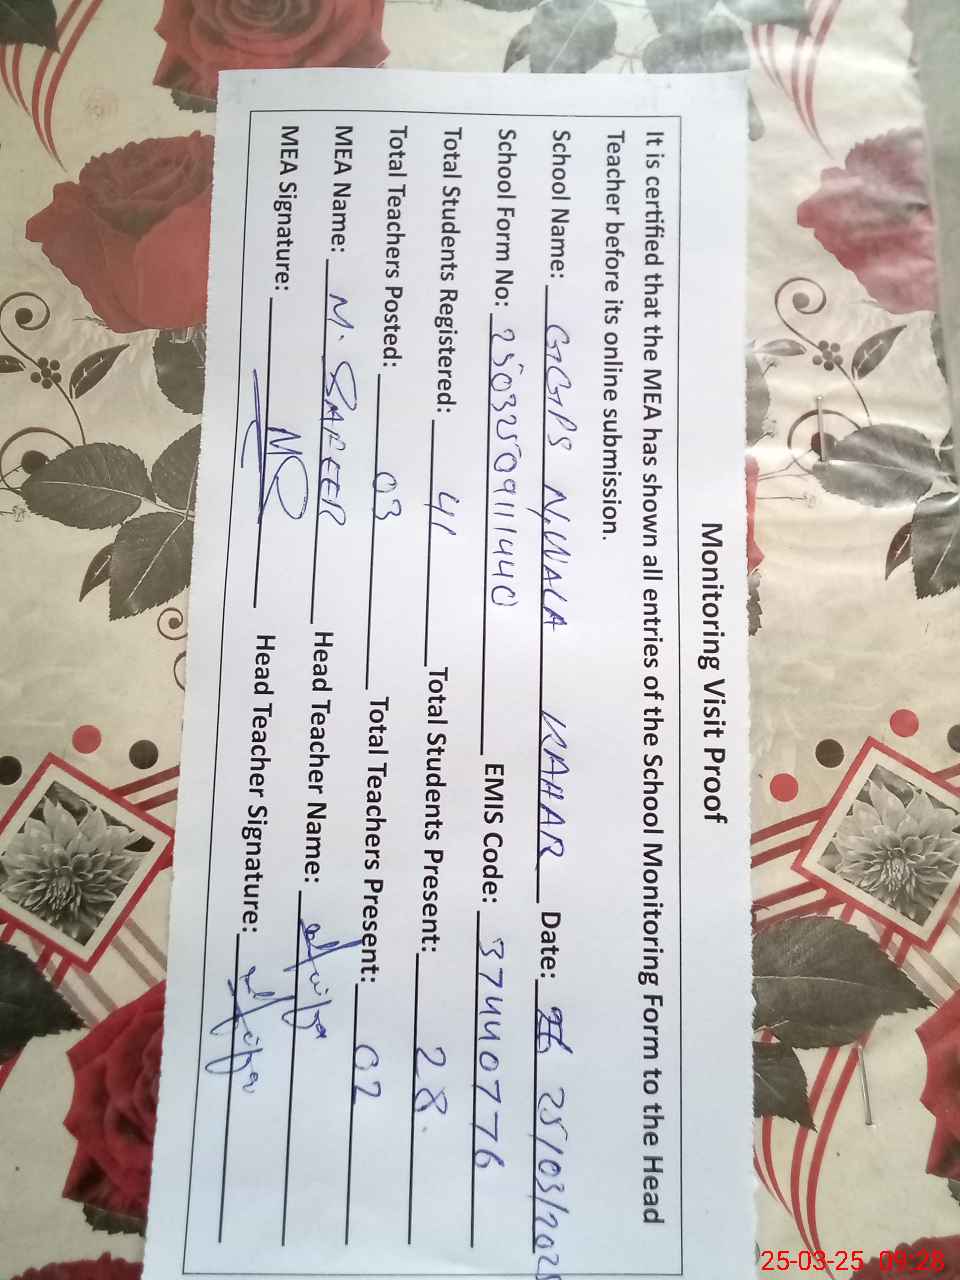 Monitoring Visit Proof
It is certified that the MEA has shown all entries of the School Monitoring Form to the Head
Teacher before its online submission.
School Name: GGPS N.WALA KAHAR Date: 25/03/2025
School Form No: 2503250911440 EMIS Code: 37440776
Total Students Registered: 41 Total Students Present: 28.
Total Teachers Posted: 03 Total Teachers Present: 02
MEA Name: M. SAFEER Head Teacher Name:
MEA Signature: Head Teacher Signature:
25-03-25 09:28